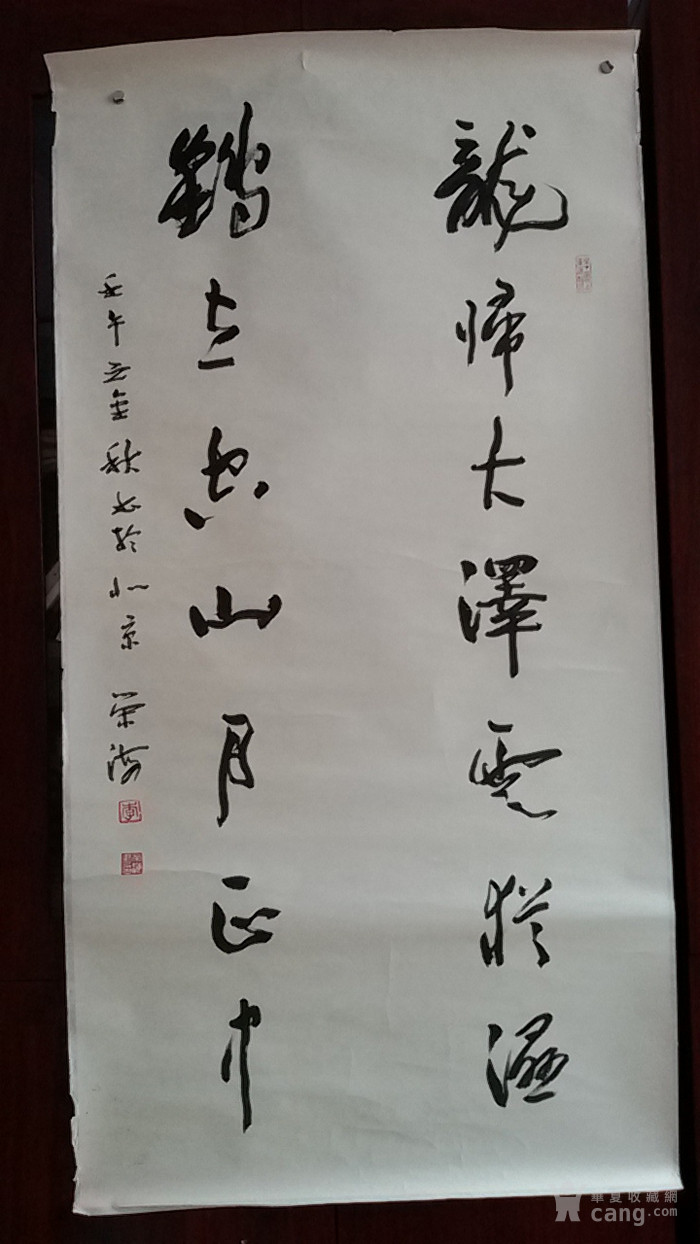 龍歸大澤雲猶濕
鶴立空山月正中
壬午之金秋書於北京 榮海
李
華夏收藏網
cang.com